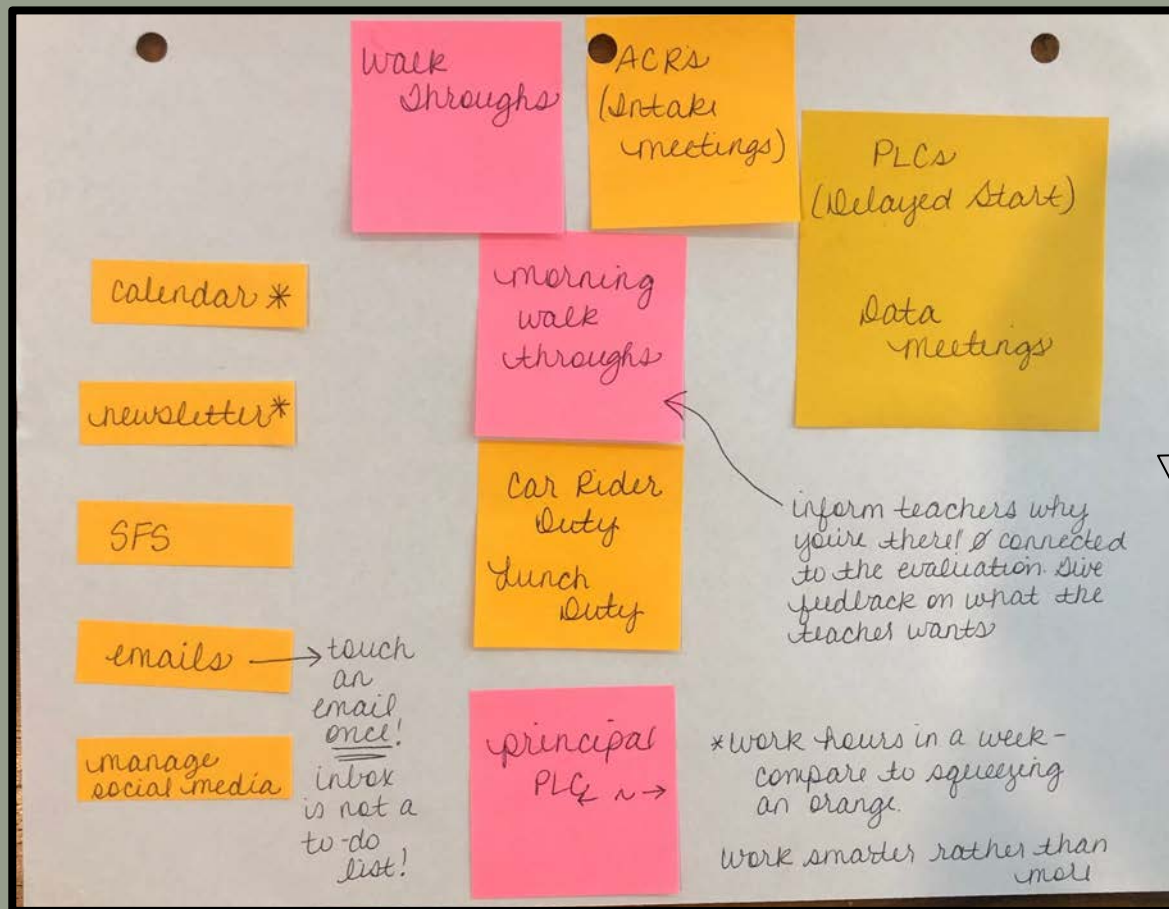 Walk
Throughs
ACR's
(Intake
meetings)
PLCs
(Delayed Start)
Data
meetings
calendar *
newsletter *
SFS
emails →
touch
an
email
once!
inbox
is not a
to-do
list!
manage
social media
morning
walk
throughs
Car Rider
Duty
Lunch
Duty
principal
PLC ← ~ →
inform teachers why
you're there! ∅ connected
to the evaluation. Give
feedback on what the
teacher wants
*work hours in a week-
compare to squeezing
an orange.
Work smarter rather than
more